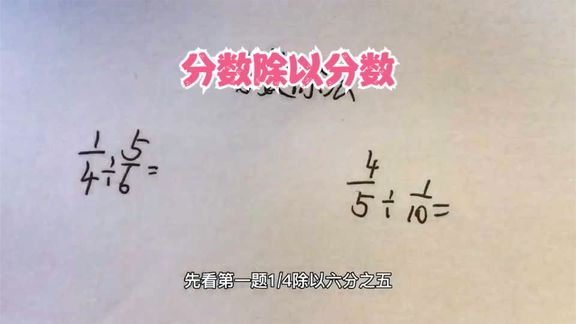 分数除以分数
1/4 ÷ 5/6 =
4/5 ÷ 1/10 =
先看第一题1/4除以六分之五